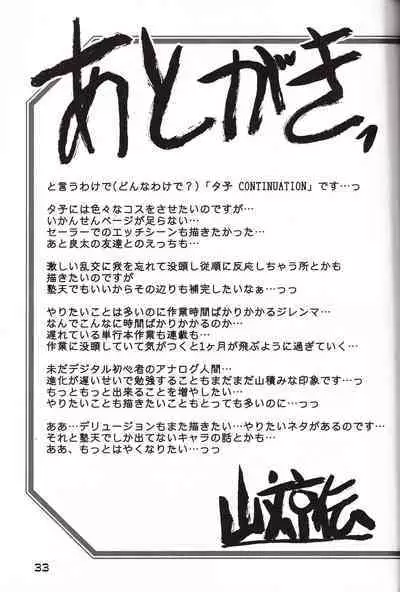 あとがき
と言うわけで(どんなわけで?)「夕子 CONTINUATION」です…っ
夕子には色々なコスをさせたいのですが…
いかんせんページが足らない…
セーラーでのエッチシーンも描きたかった…
あと良太の友達とのえっちも…
激しい乱交に我を忘れて没頭し従順に反応しちゃう所とかも
描きたいのですが
塾天でもいいからその辺りも補完したいなぁ…っっ
やりたいことは多いのに作業時間ばかりかかるジレンマ…
なんでこんなに時間ばかりかかるのか…
遅れている単行本作業も連載も…
作業に没頭していて気がつくと1ヶ月が飛ぶように過ぎていく…
未だデジタル初心者のアナログ人間…
進化が遅いせいで勉強することもまだまだ山積みな印象です…っ
もっともっと出来ることを増やしたい…
やりたいことも描きたいこともとっても多いのに…っっ
ああ…デリュージョンもまた描きたい…やりたいネタがあるのです…
それと塾天でしか出てないキャラの話とかも…
ああ、もっとはやくなりたい…っっ
山文京伝
33